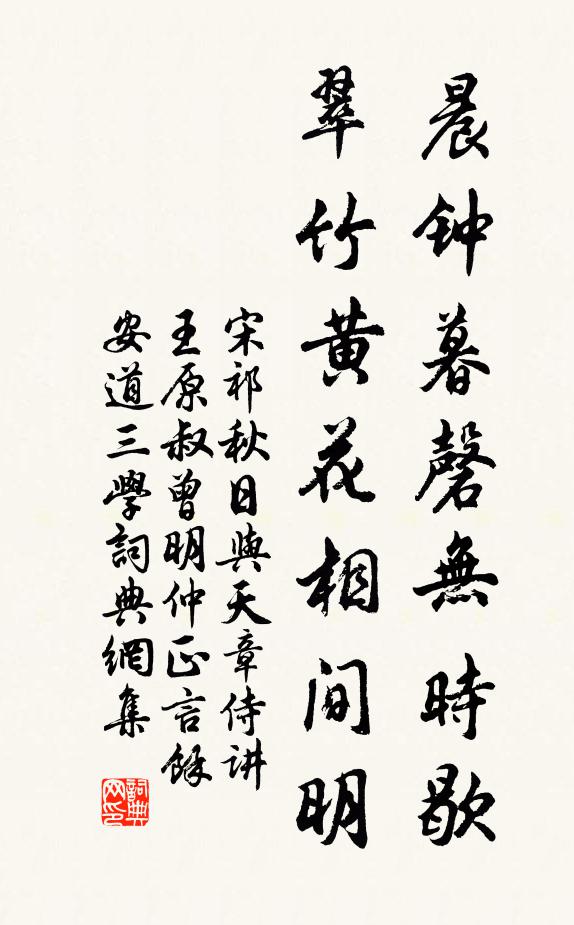 晨钟暮磬無時歇
翠竹黄花相间明
宋祁秋日與天章侍讲
王原叔曾明仲正言餘
安道三學詞典網集
詞典网印